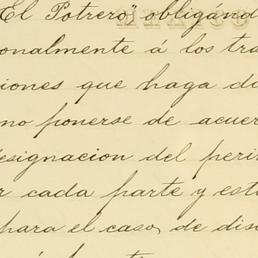 El Potrero" obligánd
onalmente á los tra
iones que haga du
no ponerse de acuer
esignacion del peri
r cada parte y est
para el caso, de dis